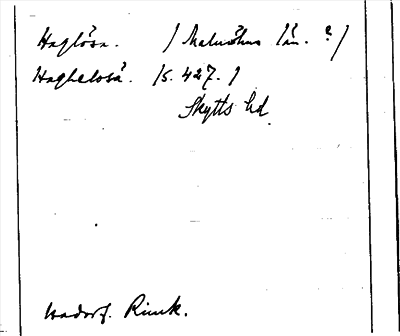 Haglösa. / Malmöhus län. ? /
Haghelosä. /s. 427. /
Skytts hd
Wadorf. Rimk.